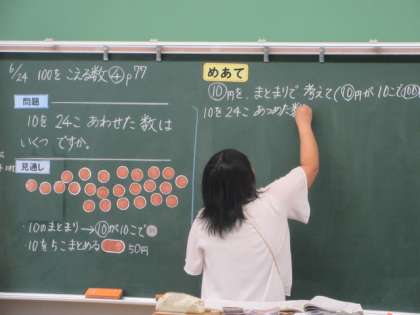 6/24 100をこえる数④ p77
問題
10を24こ あわせた 数は
いくつ ですか。
見通し
・10のまとまり→⑩が10こで
・10を5こまとめる 50円
めあて
⑩円を、まとまりで 考えて(⑩円が10こで100
10を24こ あつめた数